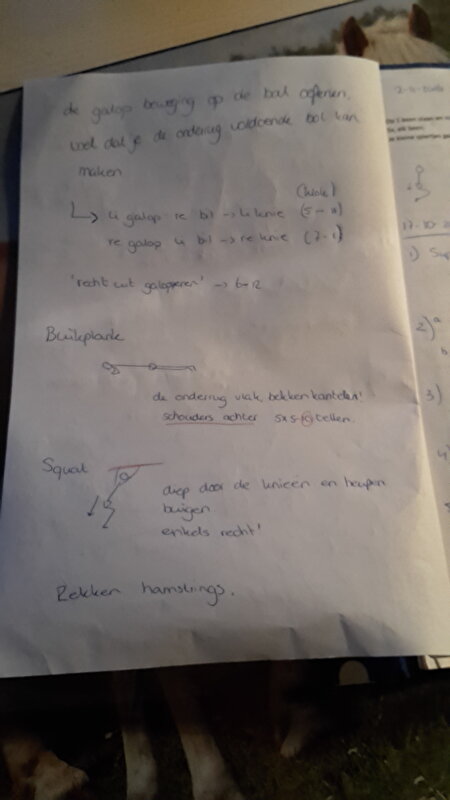 de galop beweging op de bal oefenen,
voel dat je de onderrug voldoende bol kan
maken
(klok)
↳ li galop re bil → li knie (5-11)
re galop li bil → re knie (7-1)
'recht uit galopperen' → 6-12
Buikplank
de onderrug vlak, bekken kantelen!
schouders achter 5x 5-10 tellen.
Squat
diep door de knieën en heupen
buigen
enkels recht!
Rekken hamstrings.
1)
2) a
b
3)